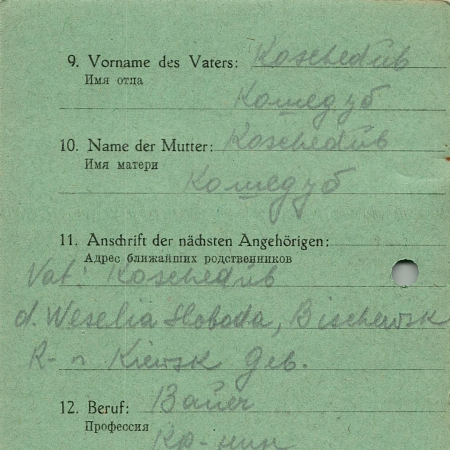 9. Vorname des Vaters: Koschedub
Имя отца
Кошедуб
10. Name der Mutter: Koschedub
Имя матери
Кошедуб
11. Anschrift der nächsten Angehörigen:
Адрес ближайших родственников
Vat. Koschedub
d. Weselia Sloboda, Bischewsk
R-n Kiewsk Geb.
12. Beruf: Bauer
Профессия
Кр-нин